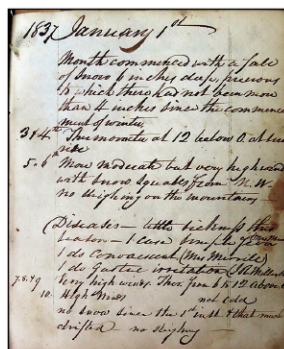 1837 January 1st
Month commenced with a fall
of Snow 6 inches deep, previous
to which there had not been more
than 4 inches since the commence
ment of winter
3 & 4th Thermometer at 12 below 0. at sun
rise
5. 6th More moderate but very high wind
with Snow Squalls from N. W.
no sleighing on the mountains
Diseases — little sickness this
season — 1 case
1 do (Mrs
1 do Gastric irritation
7.8.&9 Very high winds. Ther. from 6 to 12 above 0
10. High Winds not cold
no snow since the 1st inst & that much
drifted no sleighing —